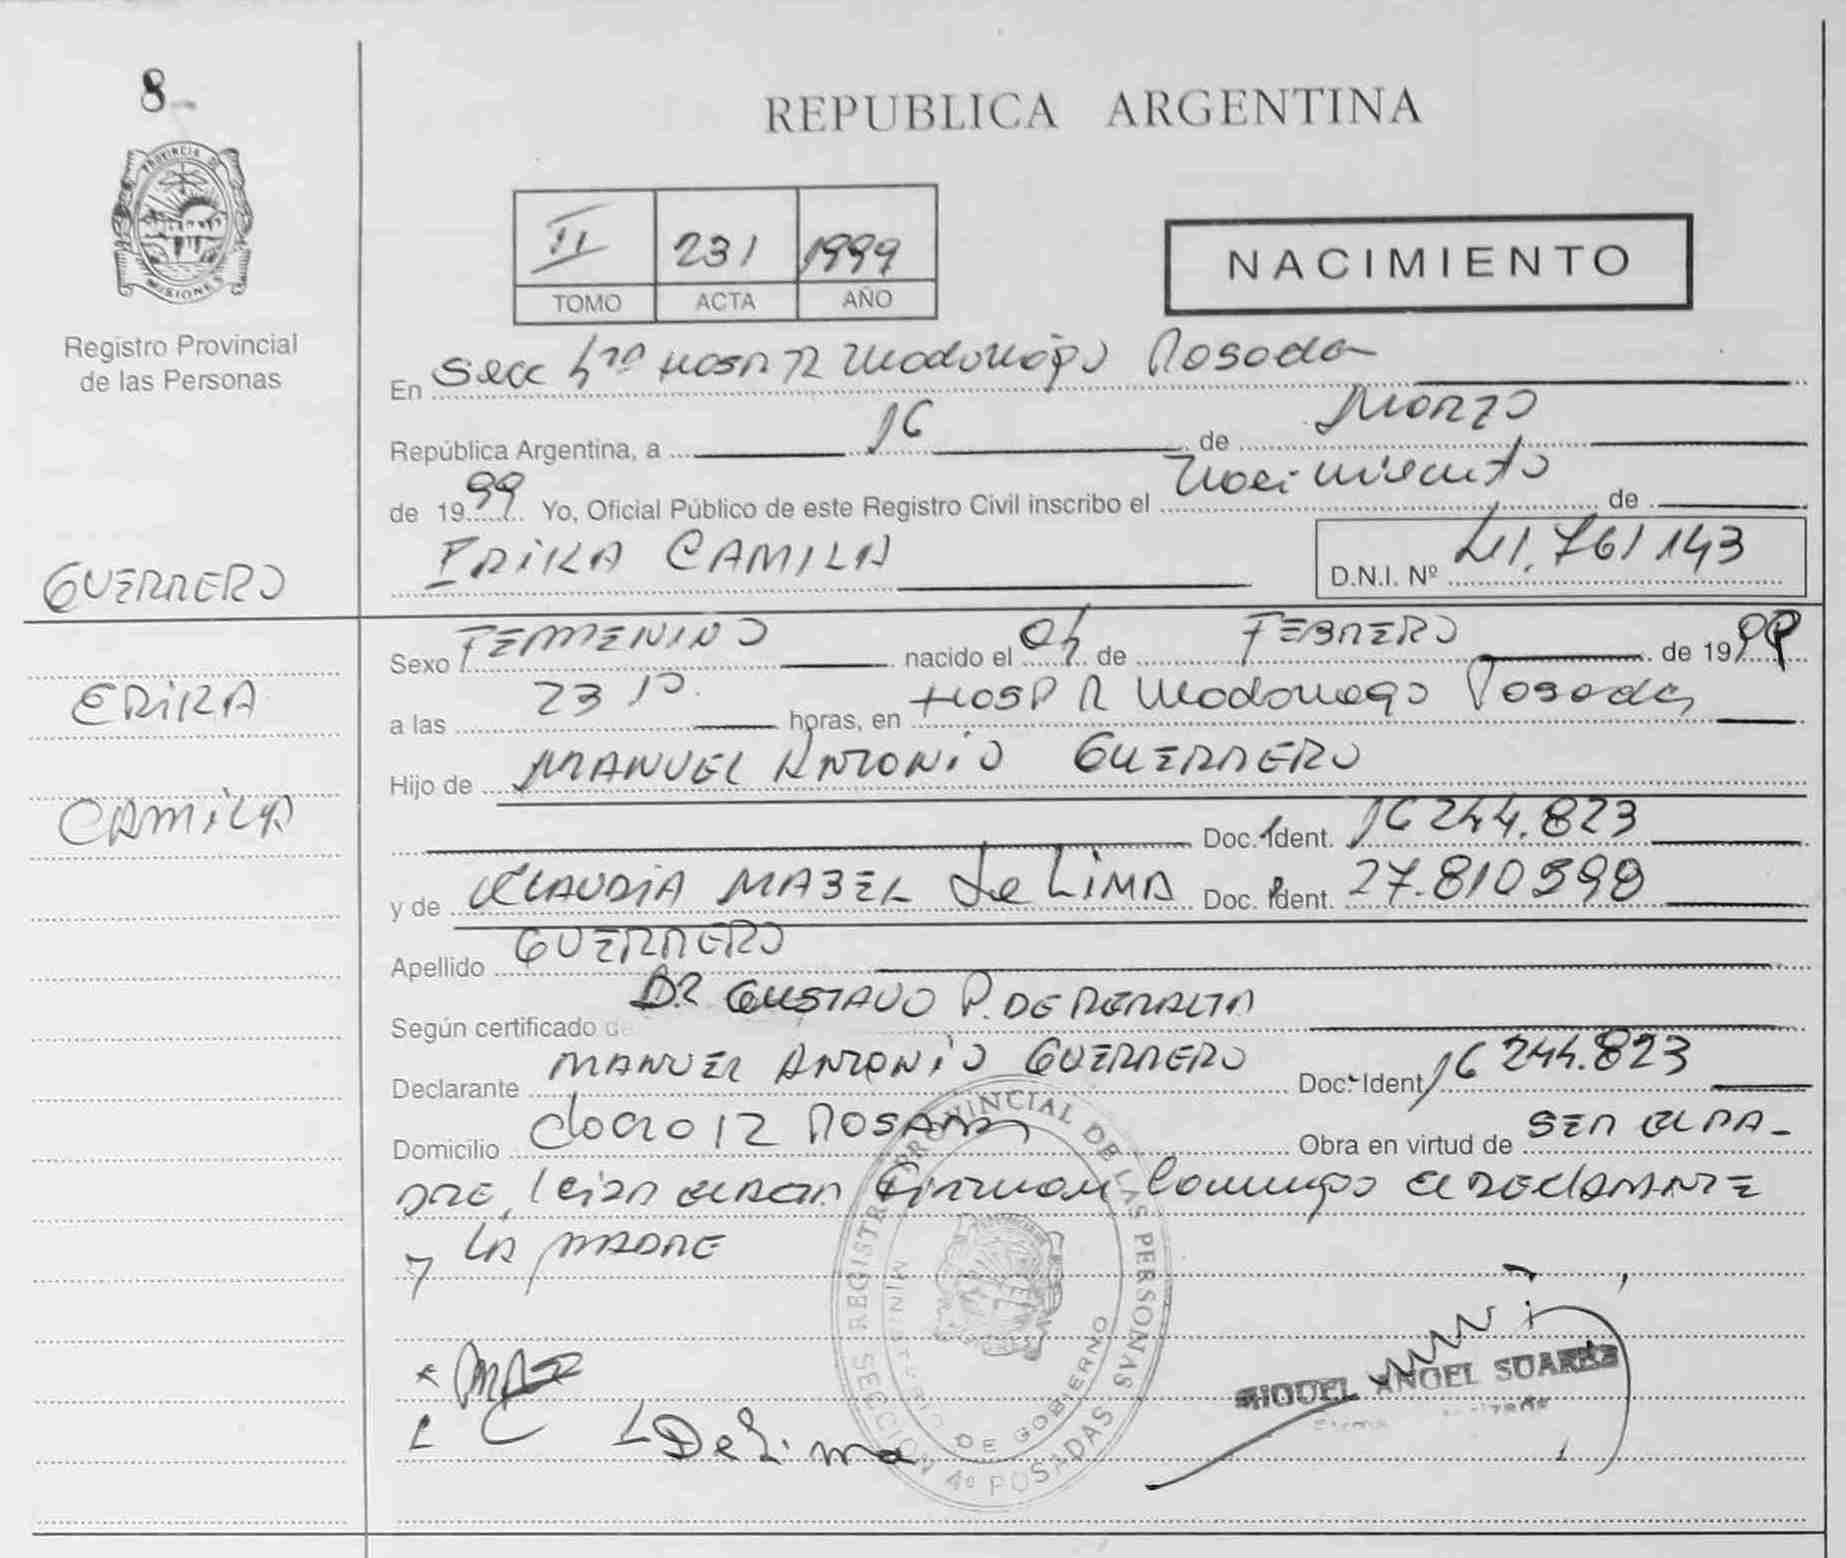 8
REPUBLICA ARGENTINA
PROVINCIA DE
MISIONES
Registro Provincial
de las Personas
II 231 1999
TOMO ACTA AÑO
NACIMIENTO
En Secc 4ta Hosp R Madariaga Posadas
República Argentina, a 16 de Marzo
de 1999 Yo, Oficial Público de este Registro Civil inscribo el Nacimiento de
ERIKA CAMILA D.N.I. Nº 41.761143
GUERRERO
ERIKA
CAMILA
Sexo FEMENINO nacido el 04 de FEBRERO de 1999
a las 23 10 horas, en HOSP R Madariaga Posadas
Hijo de MANUEL ANTONIO GUERRERO
Doc. Ident. 16 244.823
y de CLAUDIA MABEL de LIMA Doc. Ident. 27.810598
Apellido GUERRERO
Según certificado de DR GUSTAVO P. DE PERALTA
Declarante MANUEL ANTONIO GUERRERO Doc. Ident 16 244.823
Domicilio 12 Obra en virtud de SER EL PA-
DRE, Firman Conmigo el DECLARANTE
y LA MADRE
SECCION 4º POSADAS REGISTRO PROVINCIAL DE LAS PERSONAS
DE GOBIERNO
MIGUEL ANGEL SUAREZ
C L De Lima